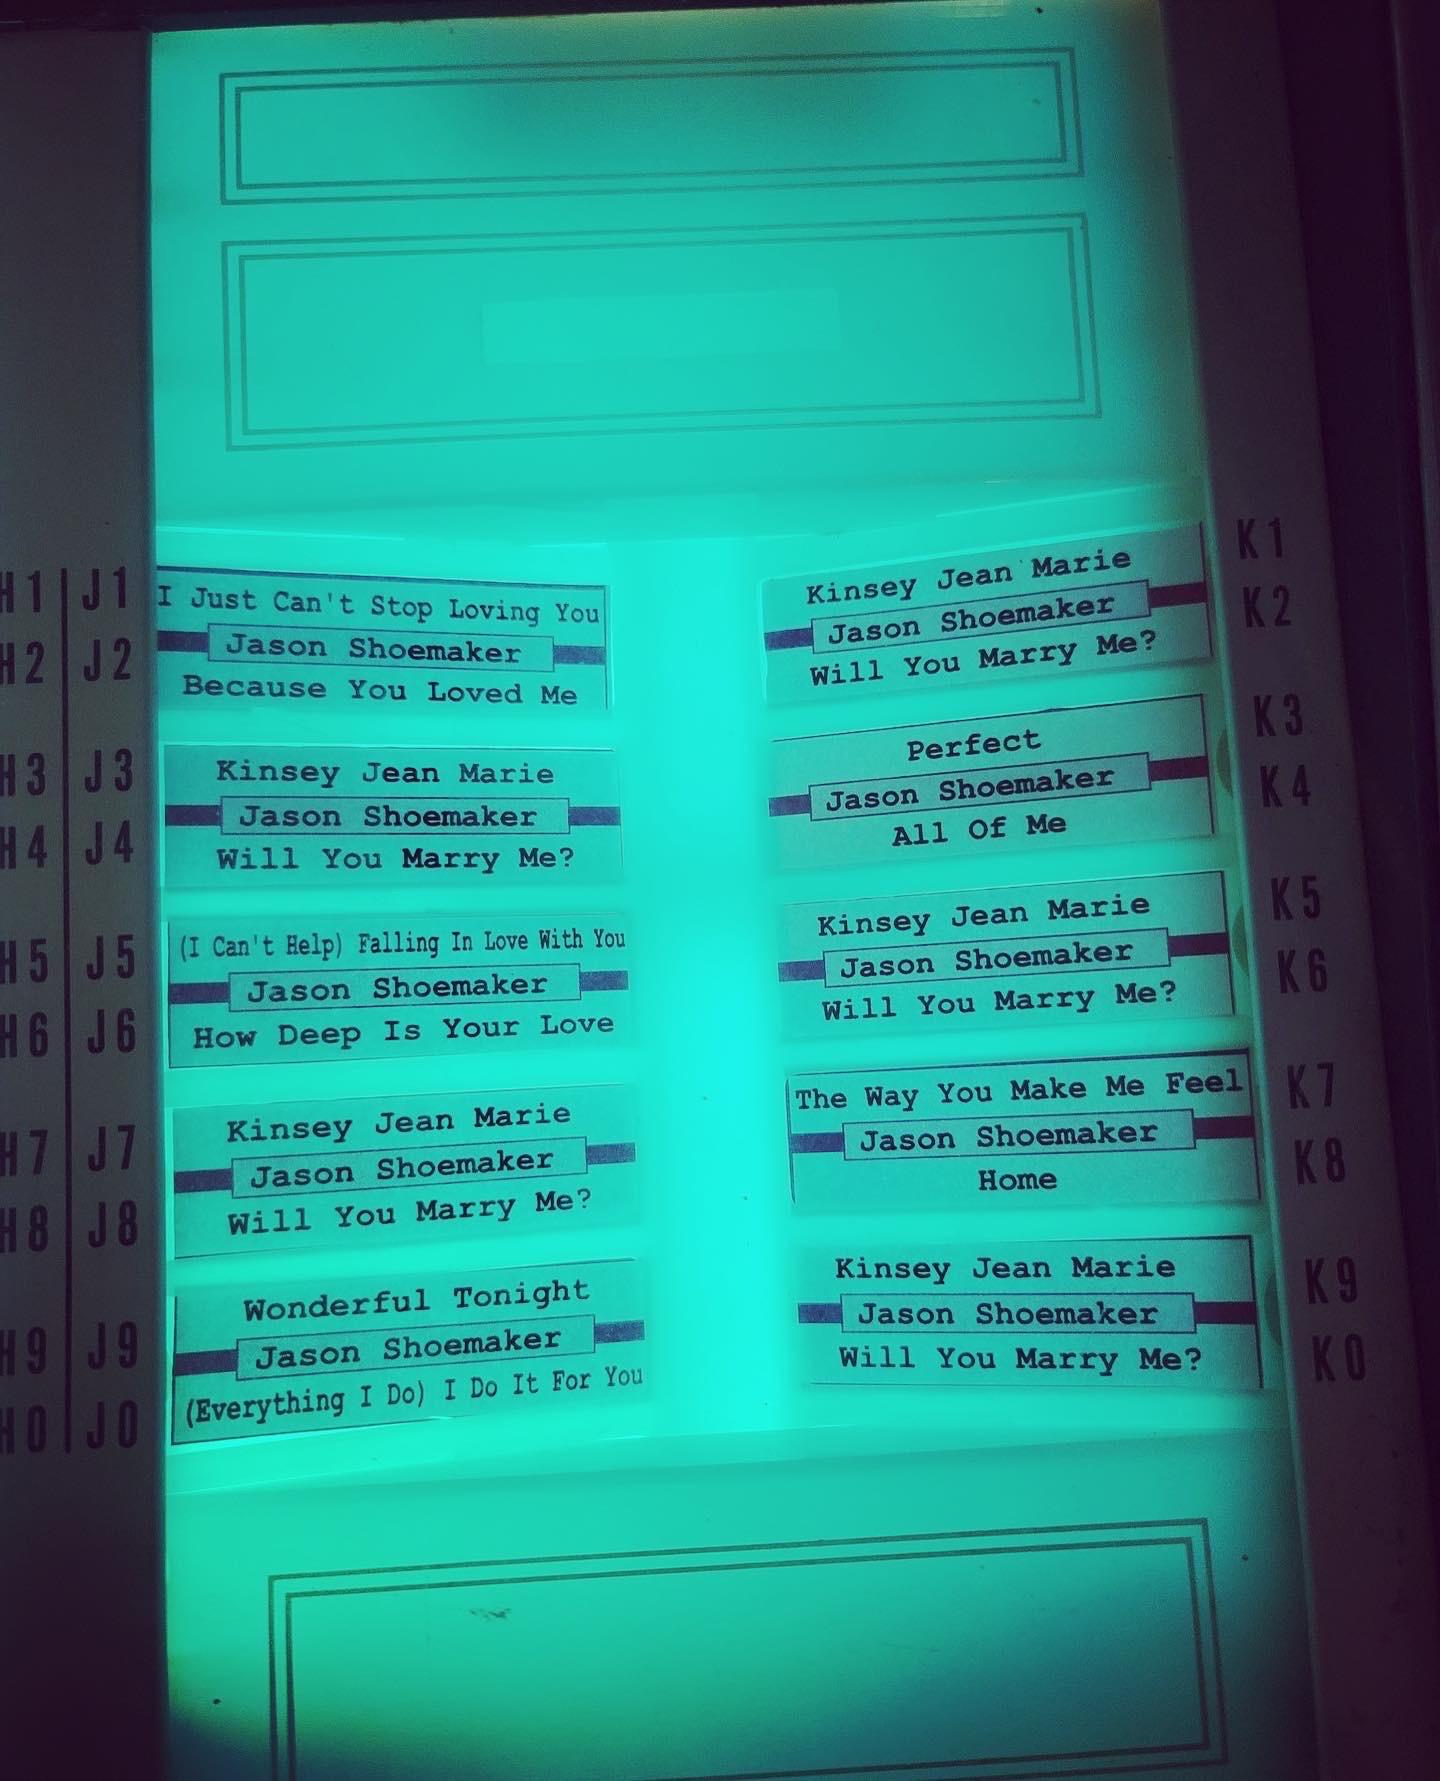 I Just Can't Stop Loving You
Jason Shoemaker
Because You Loved Me
Kinsey Jean Marie
Jason Shoemaker
Will You Marry Me?
(I Can't Help) Falling In Love With You
Jason Shoemaker
How Deep Is Your Love
Kinsey Jean Marie
Jason Shoemaker
Will You Marry Me?
Wonderful Tonight
Jason Shoemaker
(Everything I Do) I Do It For You
Kinsey Jean Marie
Jason Shoemaker
Will You Marry Me?
Perfect
Jason Shoemaker
All Of Me
Kinsey Jean Marie
Jason Shoemaker
Will You Marry Me?
The Way You Make Me Feel
Jason Shoemaker
Home
Kinsey Jean Marie
Jason Shoemaker
Will You Marry Me?
H1 J1
H2 J2
H3 J3
H4 J4
H5 J5
H6 J6
H7 J7
H8 J8
H9 J9
H0 J0
K1
K2
K3
K4
K5
K6
K7
K8
K9
K0